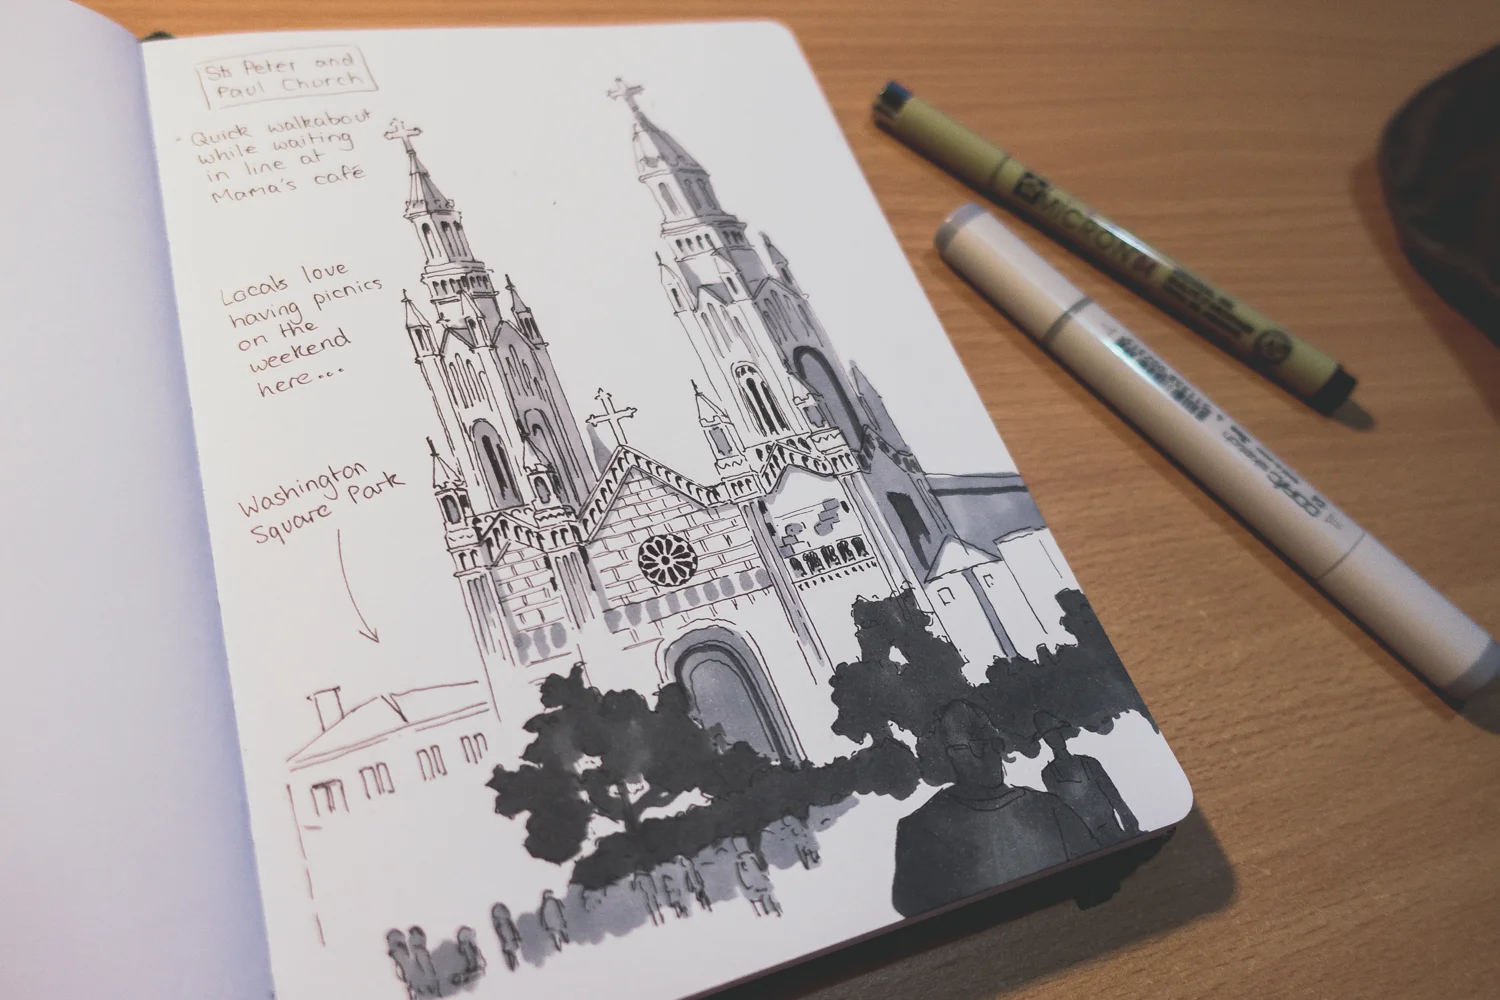 Sts Peter and
Paul Church
- Quick walkabout
while waiting
in line at
Mama's café
Locals love
having picnics
on the
weekend
here...
Washington
Square Park
MICRON
copic